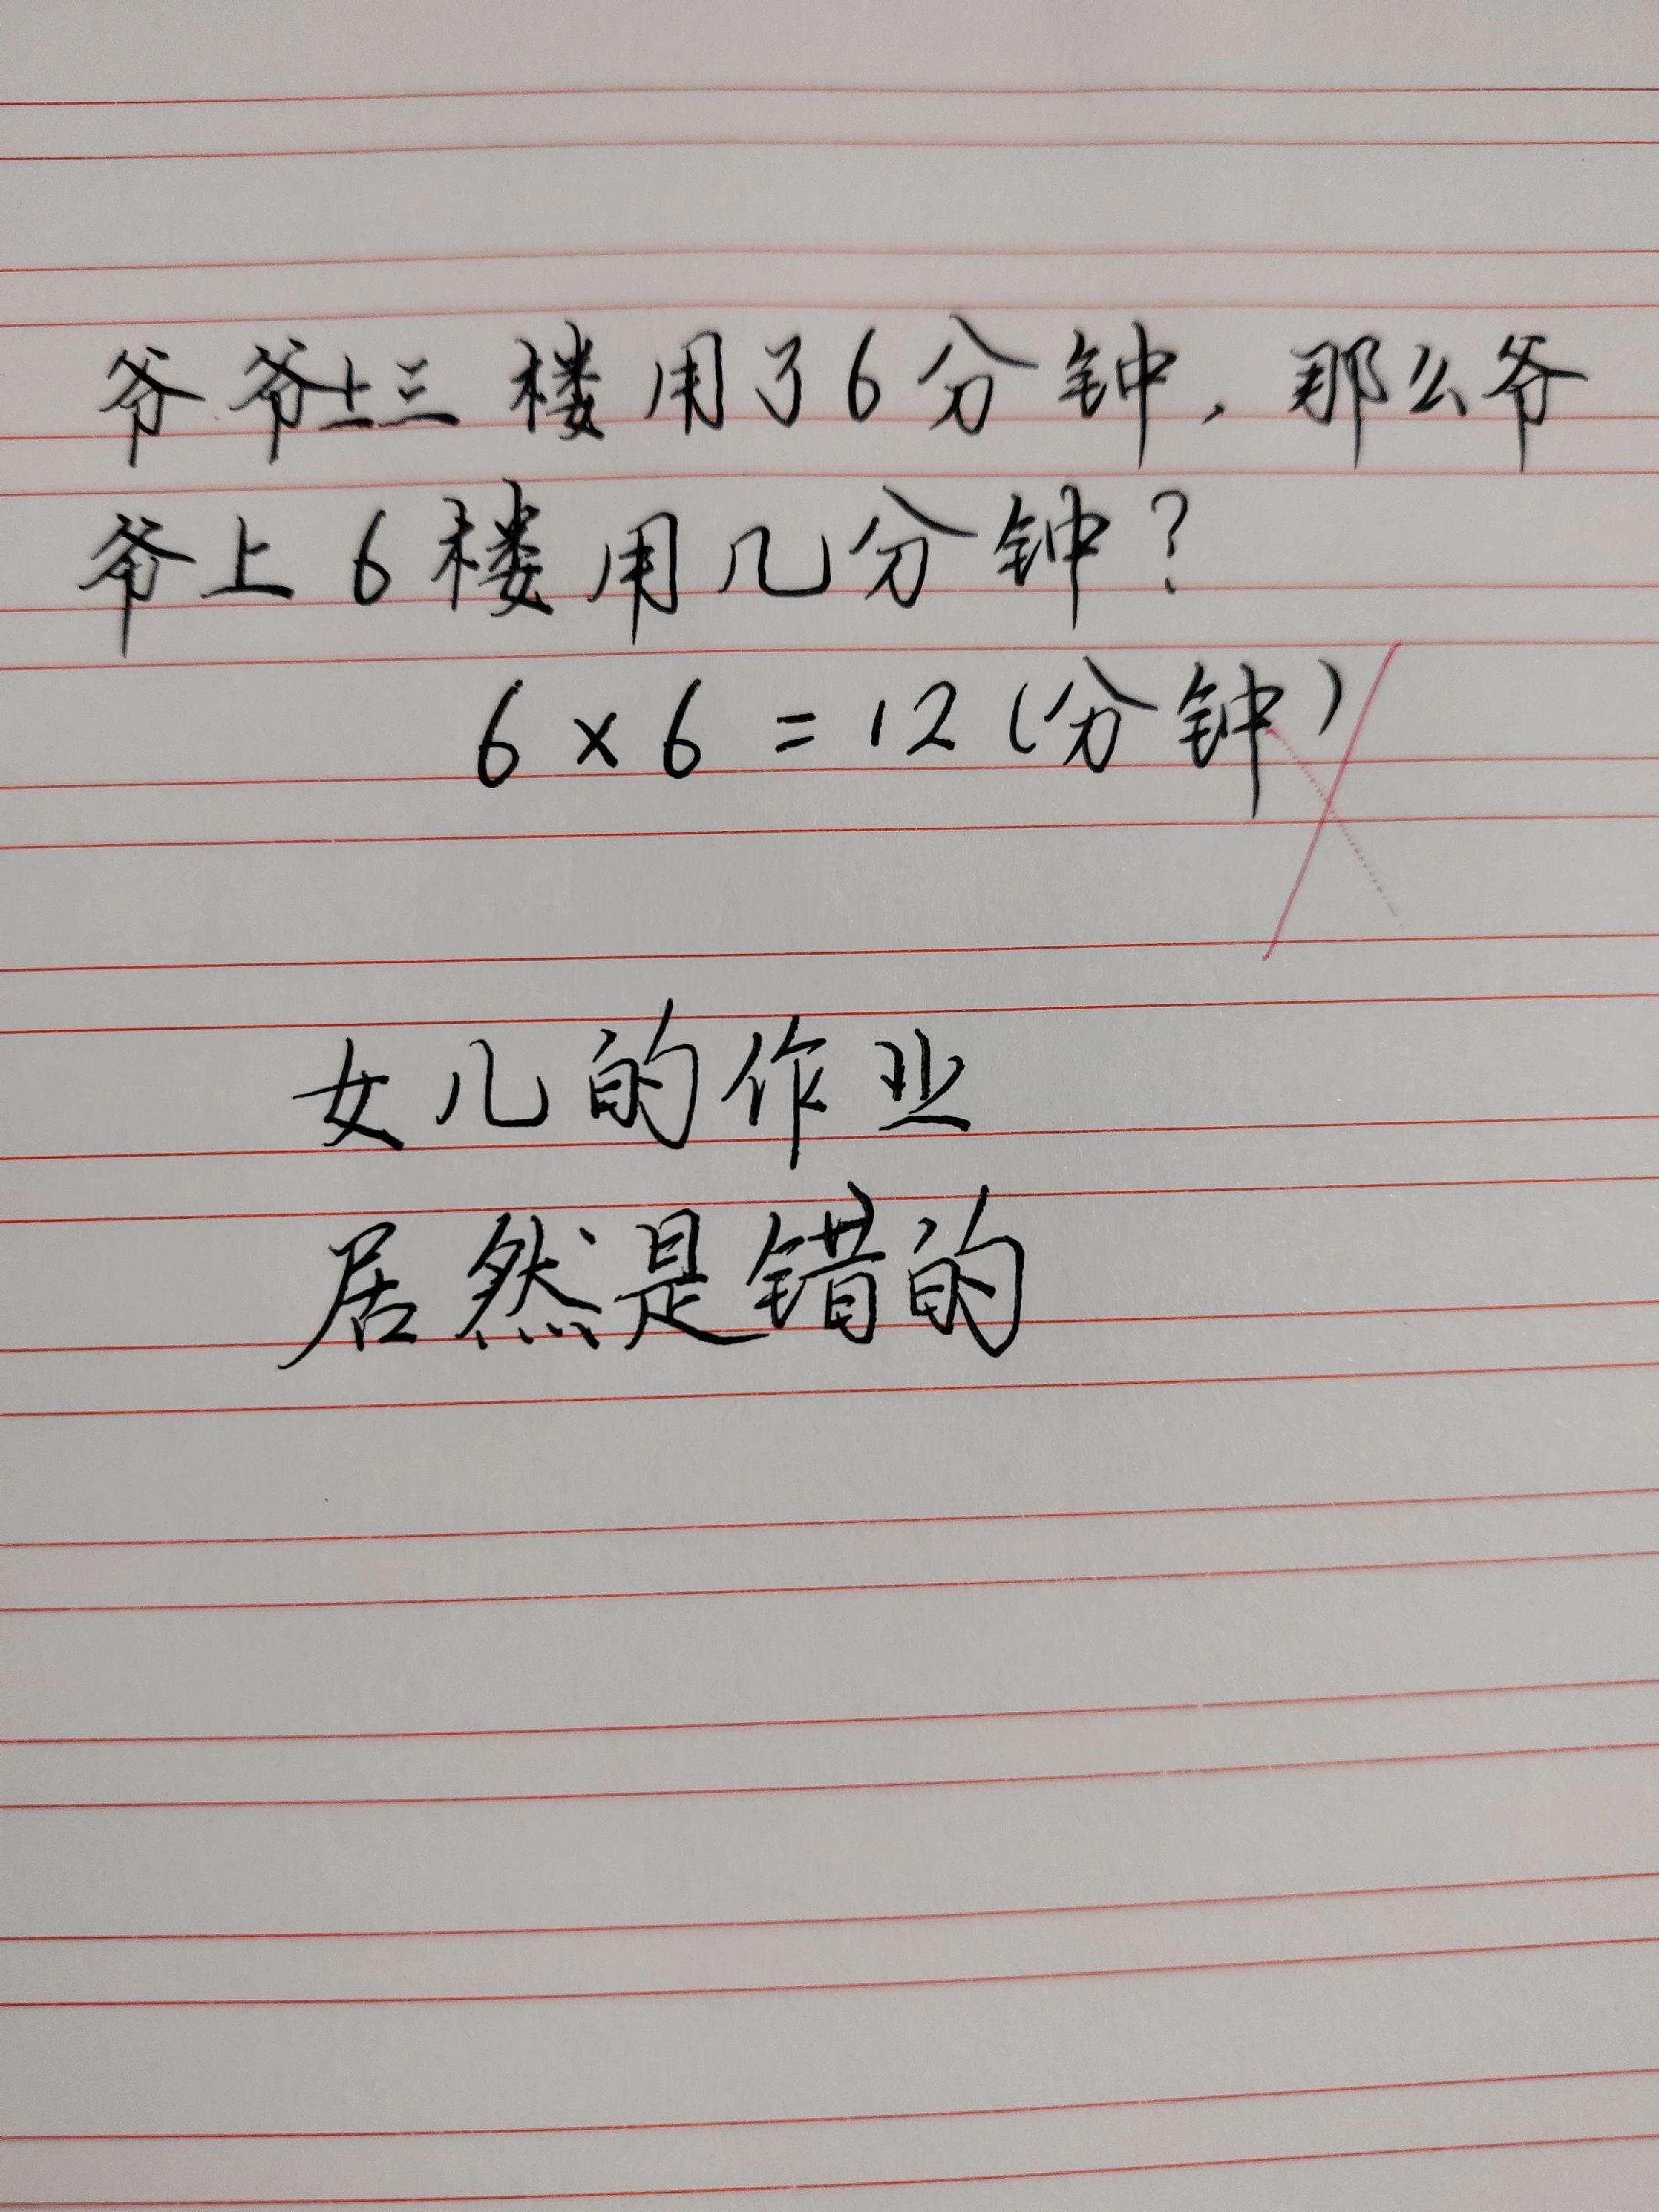 爷爷上三楼用了6分钟，那么爷
爷上6楼用几分钟？
6×6=12(分钟)
女儿的作业
居然是错的